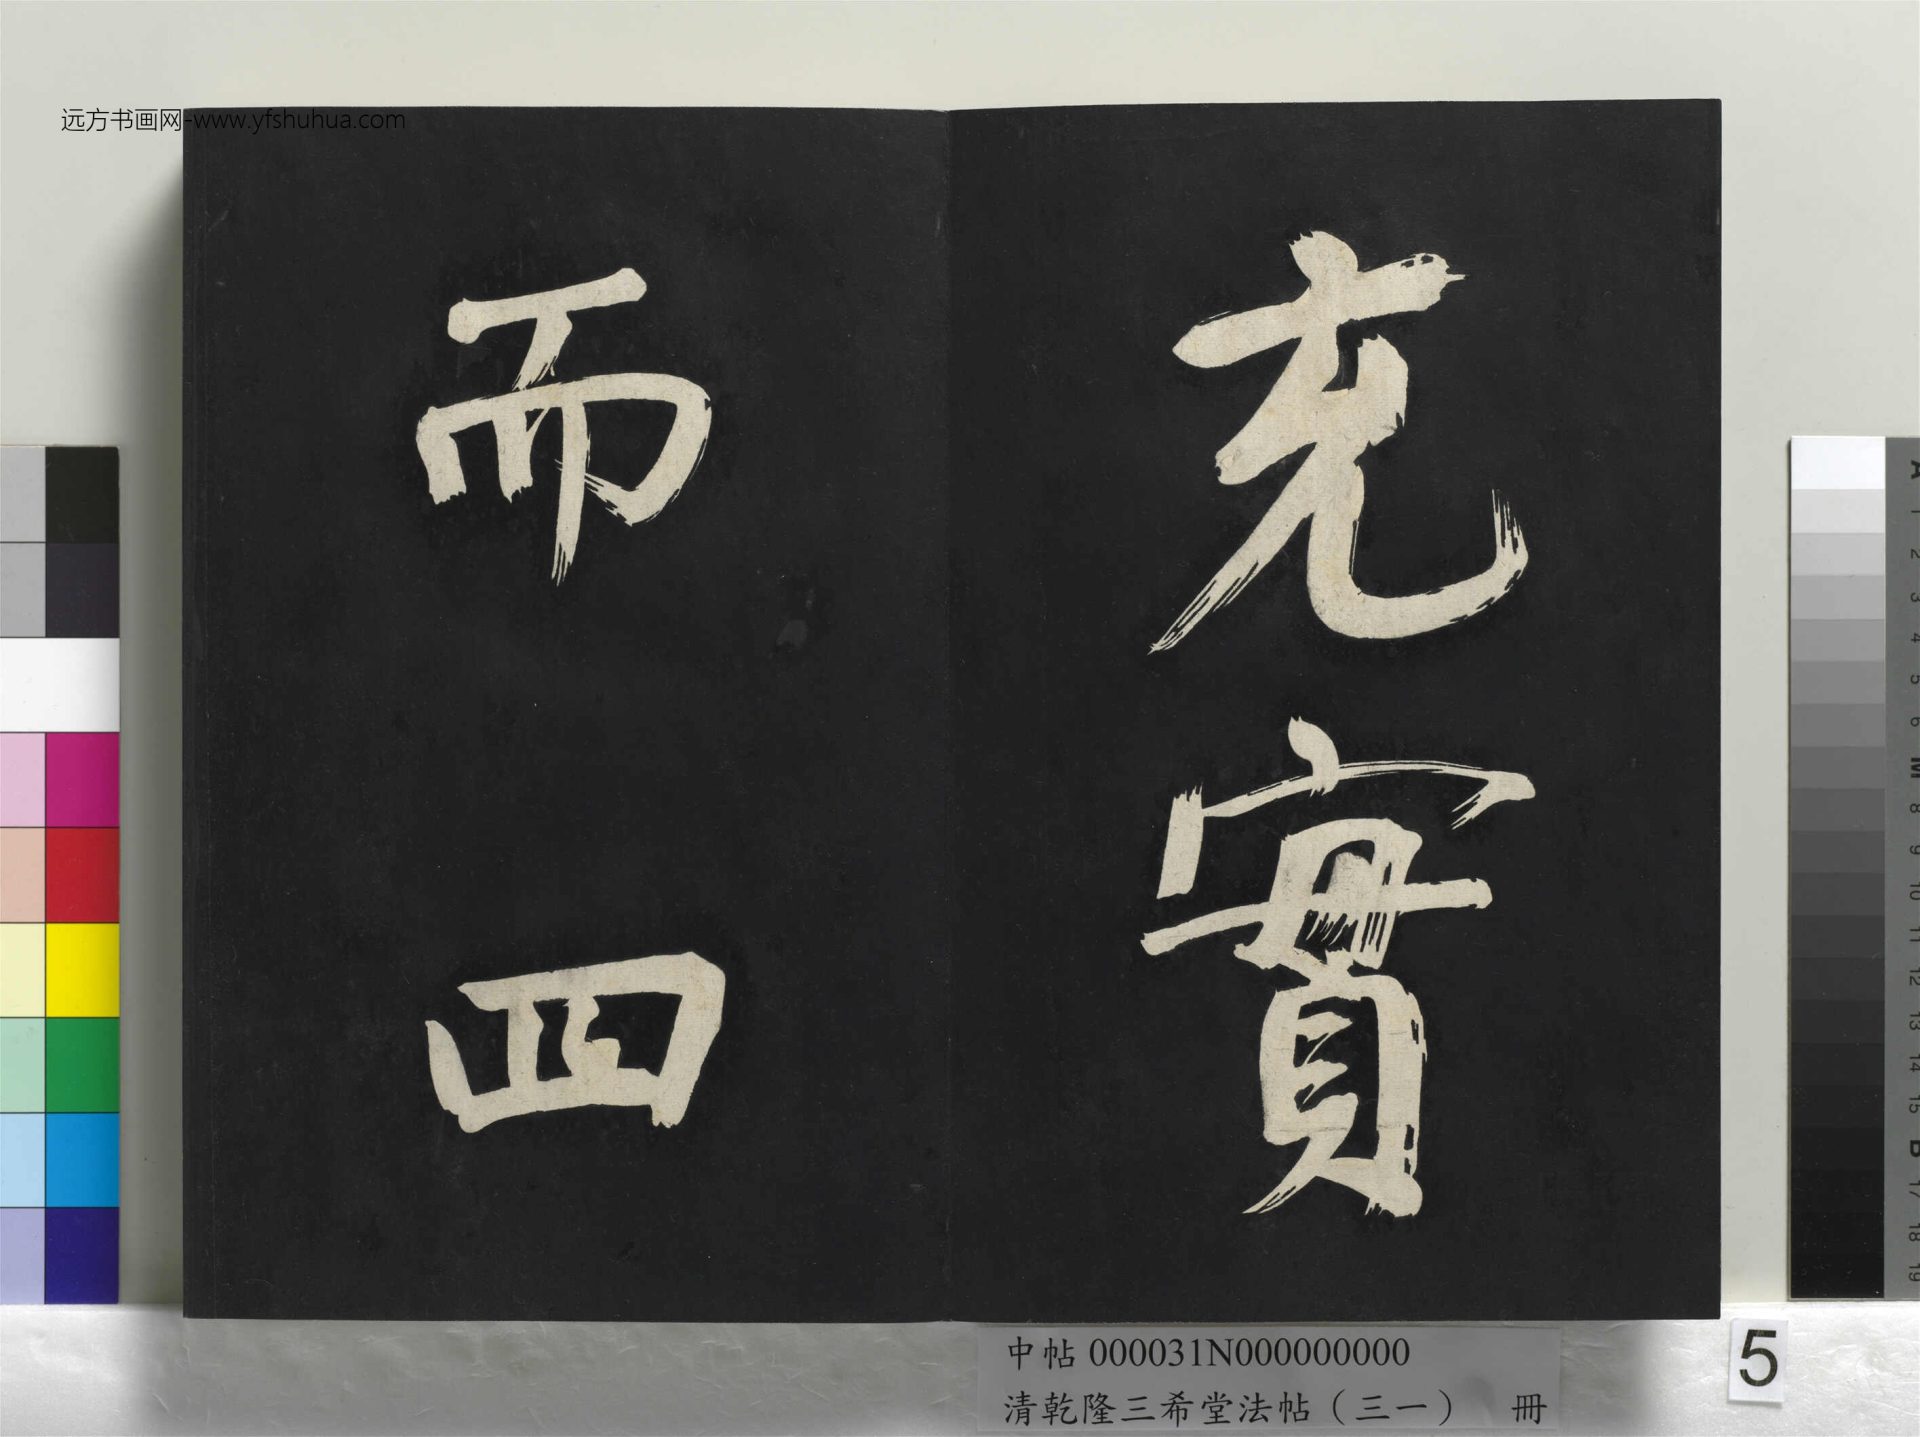 远方书画网-www.yfshuhua.com
充實
而四
中帖 000031N000000000
清乾隆三希堂法帖（三一） 冊
5
A
1
2
3
4
5
6
M
8
9
10
11
12
13
14
15
B
17
18
19